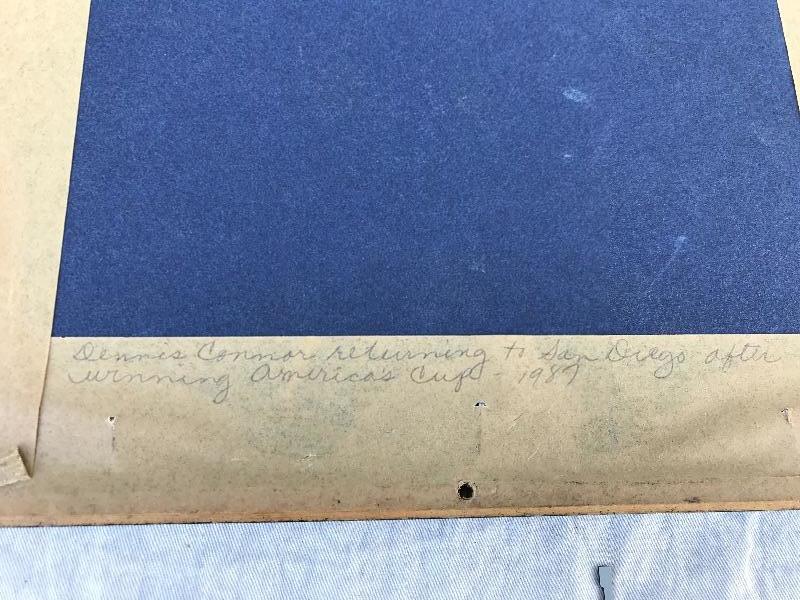 Dennis Connor returning to San Diego after
winning America's Cup - 1987